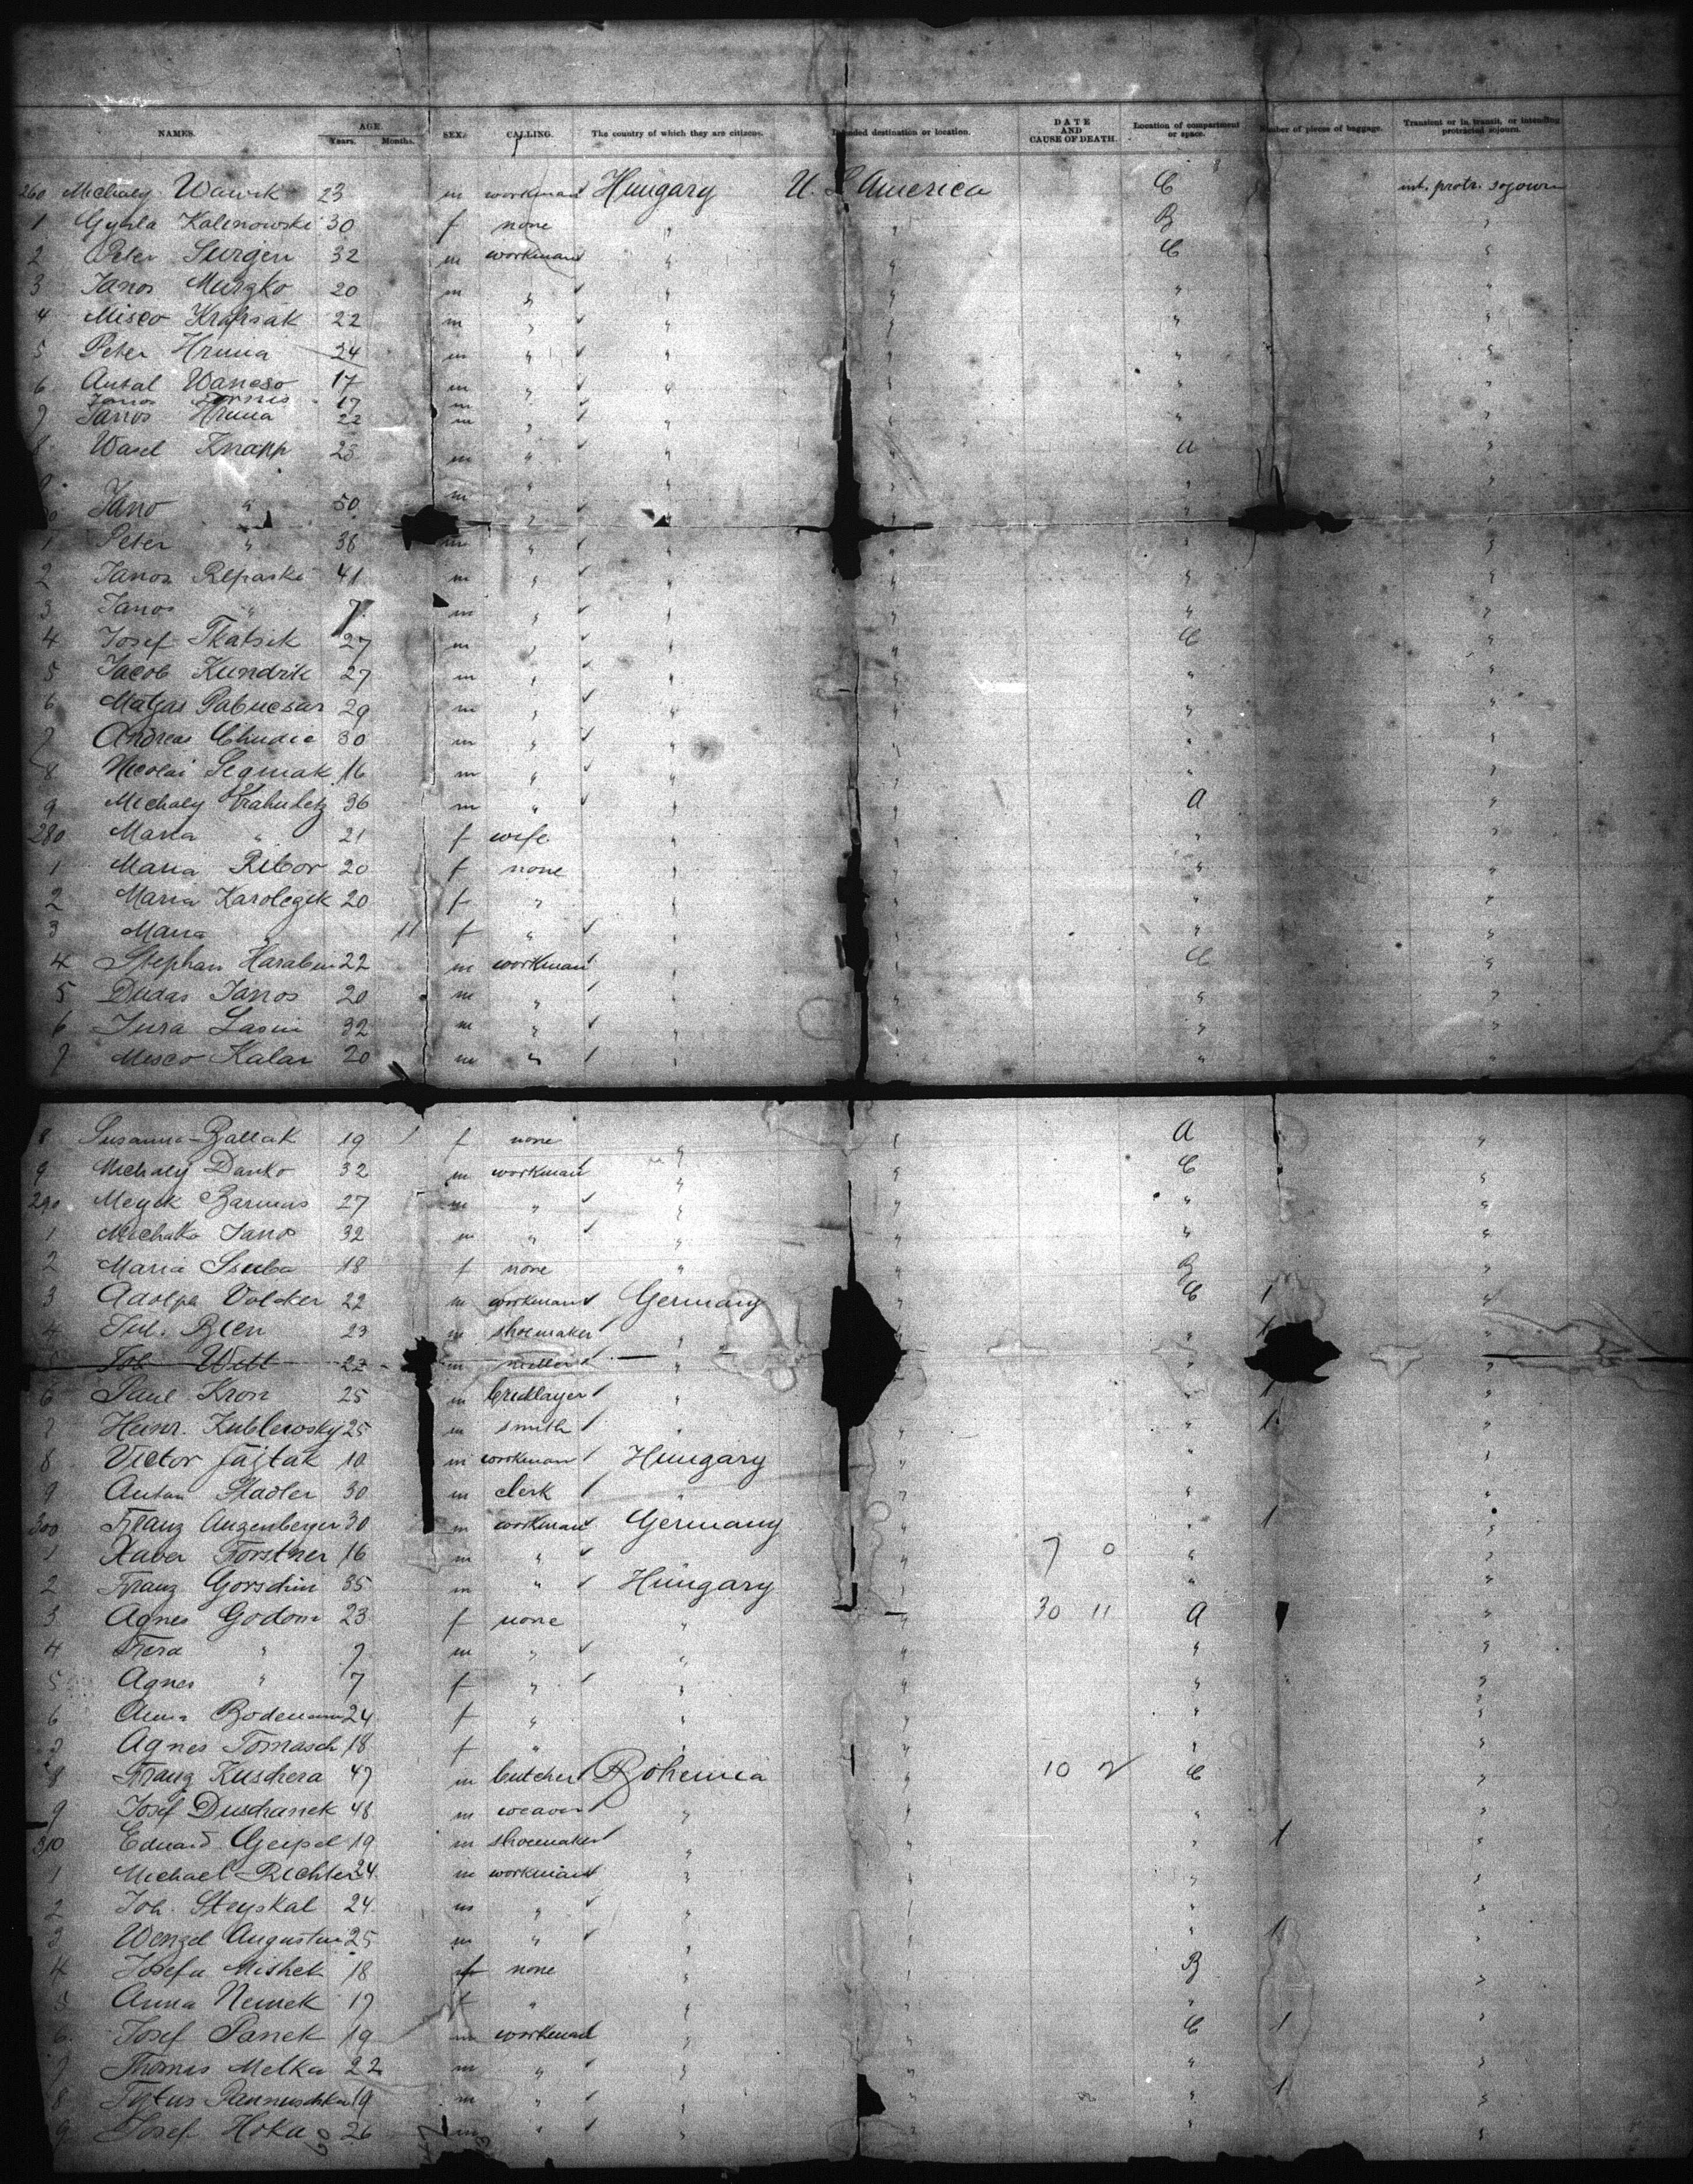 NAMES. AGE. Years. Months. SEX. CALLING. The country of which they are citizens. Intended destination or location. DATE AND CAUSE OF DEATH. Location of compartment or space. Number of pieces of baggage. Transient or in transit, or intending protracted sojourn.
260 Michaly Wawrk 23 m workman Hungary U. S. America C int. protr. sojourn
1 Kalinowski 30 f none " " B "
2 Peter Surgen 32 m workman " " C "
3 Janos Murzko 20 m " " " " "
4 Misco Krafcsak 22 m " " " " "
5 Peter Hruna 24 m " " " " "
6 Antal Wancso 17 m " " " " "
Janos Tornis 17 m
7 Janos Hruna 22 m " " " " "
8 Wasel Knapp 23 m " " " a "
Jano " 50 m " " " " "
1 Peter " 38 m " " " " "
2 Janos Repaski 41 m " " " " "
3 Janos " 7 m " " " " "
4 Josef Tkatsik 27 m " " " C "
5 Jacob Kundrik 27 m " " " " "
6 Matyas Pabucsar 29 m " " " " "
7 Andreas Chudic 30 m " " " " "
8 Nicolai Segmak 16 m " " " " "
9 Michaly Krahuletz 36 m " " " a "
280 Maria " 21 f wife " " " "
1 Maria Ribor 20 f none " " " "
2 Maria Karolczik 20 f " " " " "
3 Maria " 11 f " " " " "
4 Stephan Harabin 22 m workman " " C "
5 Dudas Janos 20 m " " " " "
6 Jura Lasin 32 m " " " " "
7 Misco Kalar 20 m " " " " "
8 Susanna Ballak 19 f none " " A "
9 Michaly Danko 32 m workman " " C "
290 Barnus 27 m " " " " "
1 Michalko Janos 32 m " " " " "
2 Maria Csuba 18 f none " " B "
3 Adolph Volcker 22 m workman Germany " C 1 "
4 Jul. Blen 23 m shoemaker " " " 1 "
Joh. Witt 22 m miller " " " "
6 Paul Kron 25 m bricklayer " " " 1 "
7 Heinr. Kublewsky 25 m smith " " " 1 "
8 Victor Fajtak 10 m workman Hungary " " "
9 Anton Stadler 30 m clerk " " " "
300 Franz Augenberger 30 m workman Germany " " 1 "
1 Xaver Forstner 16 m " " 7 0 " "
2 Franz Gorschin 35 m " Hungary " " "
3 Agnes Godom 23 f none " " 30 11 A "
4 " 7 m " " " " "
5 Agnes " 7 f " " " " "
6 Anna Bodemann 24 f " " " " "
7 Agnes Tomasch 18 f " " " " "
8 Franz Kuschera 47 m butcher Bohemia " 10 2 C "
9 Josef Duschanek 48 m weaver " " " "
310 Eduard Geipel 19 m shoemaker " " " 1 "
1 Michael Richter 24 m workman " " " "
2 Joh. Steyskal 24 m " " " " "
3 Wenzel Augustin 25 m " " " " 1 "
4 Josefa Mishek 18 f none " " B "
5 Anna Nemek 17 f " " " " "
6 Josef Panek 19 m workman " " C 1 "
7 Thomas Melka 22 m " " " " "
8 Januschka 19 m " " " " 1 "
9 Josef Hoka 26 m " " " " "